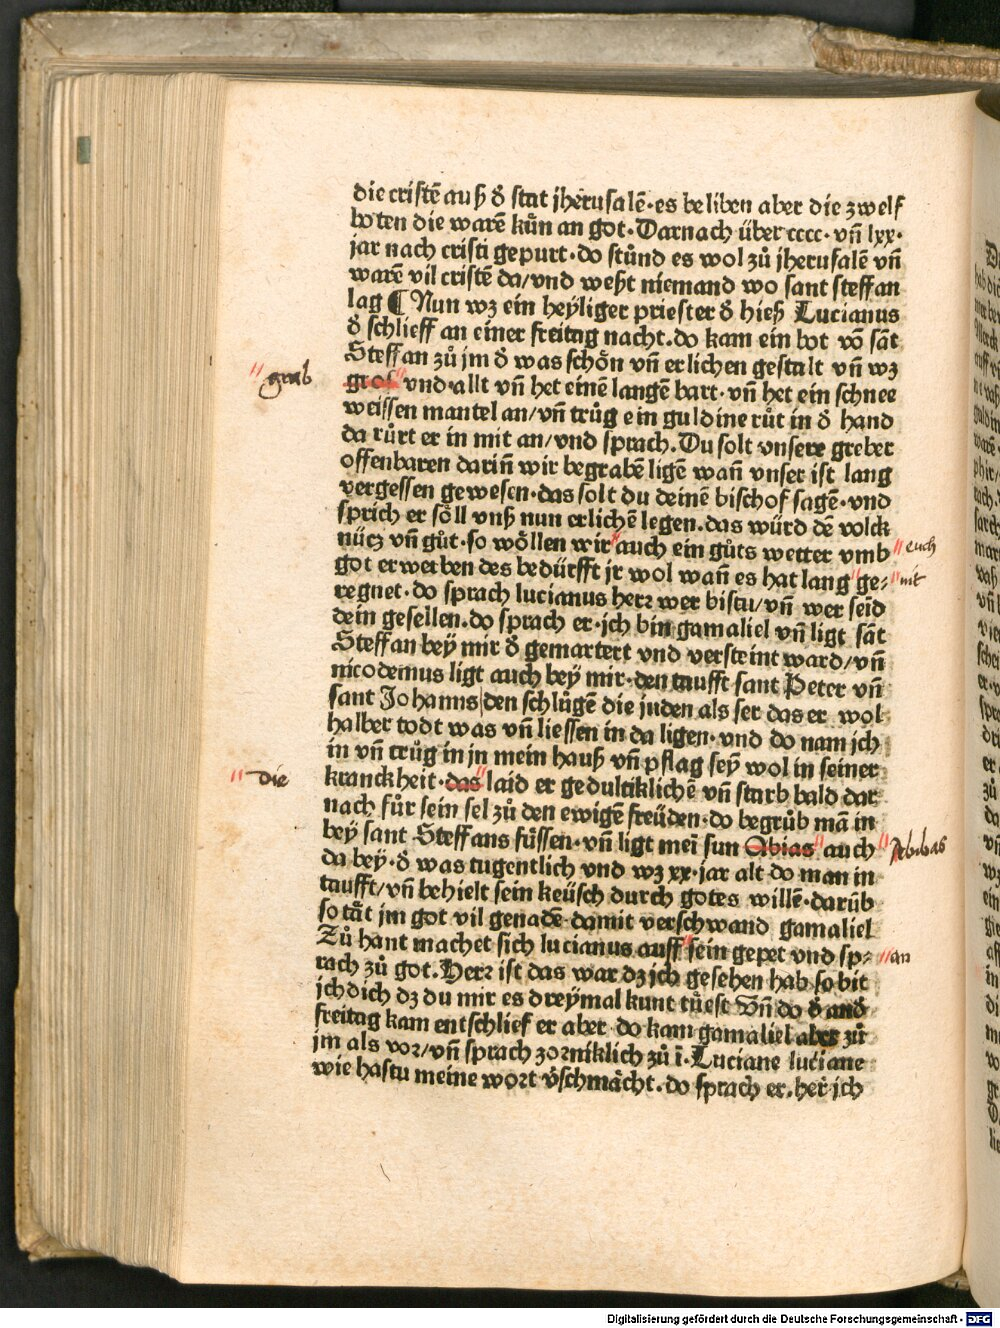 die cristē auß d̄ stat jherusalē·es beliben aber die zwelf
boten die warē kůn an got·Darnach über cccc·vñ lxx·
jar nach cristi gepurt·do stůnd es wol zů jherusalē vñ
warē vil cristē da/vnd weßt niemand wo sant steffan
lag ¶ Nun wz ein heyliger priester d̄ hieß Lucianus
d̄ schlieff an einer freitag nacht.do kam ein bot vō sāt
Steffan zů jm d̄ was schön vñ erlichen gestalt vñ wz
"grab
gros" vnd·allt vñ het einē langē bart·vñ het ein schnee
weissen mantel an/vñ trůg ein guldine růt in d̄ hand
da růrt er in mit an/vnd sprach.Du solt vnsere greber
offenbaren dariñ wir begrabē ligē wañ vnser ist lang
vergessen gewesen·das solt du deinē bischof sagē·vnd
sprich er söll vnß nun erlichē legen.das würd dē volck
nücz vñ gůt·so wöllen wir"auch ein gůts wetter vmb "euch
got erwerben des bedürfft jr wol wañ es hat lang"ge⸗ "nit
regnet·do sprach lucianus herr wer bistu/vñ wer seid
dein gesellen.do sprach er·jch bin gamaliel vñ ligt sāt
Steffan bey mir d̄ gemartert vnd versteint ward/vñ
nicodemus ligt auch bey mir·den taufft sant Peter vñ
sant Johanns|den schlůgē die juden als ser das er wol
halber todt was vñ liessen in da ligen·vnd do nam jch
in vñ trůg in jn mein hauß vñ pflag sey wol in seiner
"die
kranckheit·das"laid er gedultiklichē vñ starb bald dar
nach fůr sein sel zů den ewigē freüden·do begrůb mā in
bey sant Steffans füssen·vñ ligt mei sun Abias"auch "Abibas
da bey·d̄ was tugentlich vnd wz xx·jar alt do man in
taufft/vñ behielt sein keüsch durch gotes willē·darūb
so tät jm got vil genadē·damit verschwand gamaliel
Zů hant machet sich lucianus auff"sein gepet vnd sp⸗ "an
rach zů got.Herr ist das war dz jch gesehen hab so bit
jch dich dz du mir es dreymal kunt tůest Vñ do d̄ and̄
freitag kam entschlief er aber·do kam gamaliel aber zů
jm als vor/vñ sprach zorniklich zů ī.Luciane luciane
wie hastu meine wort v̄schmächt.do sprach er.her jch
Digitalisierung gefördert durch die Deutsche Forschungsgemeinschaft - DFG